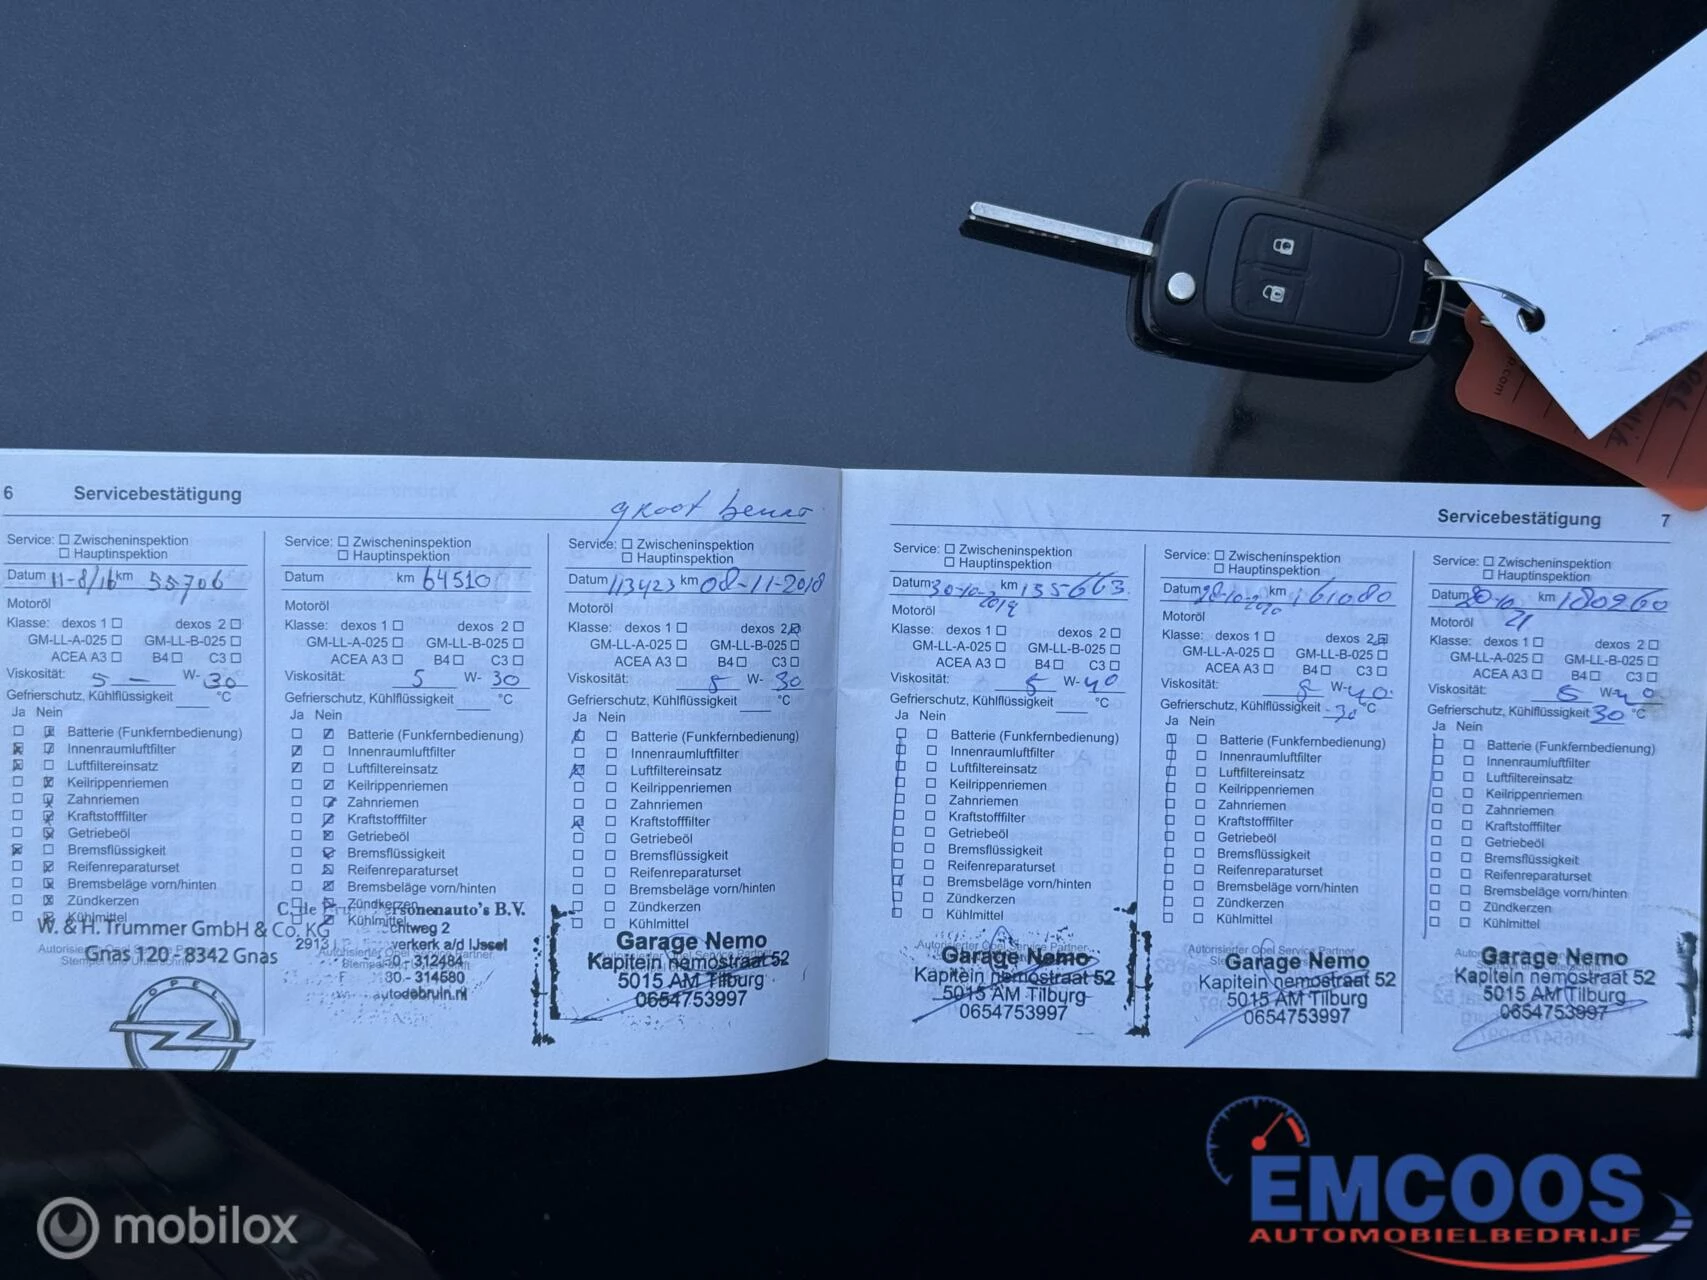 6 Servicebestätigung
groot beurt
Service: Zwischeninspektion
Hauptinspektion
Datum 11-8/16 km 55706
Motoröl
Klasse: dexos 1 dexos 2
GM-LL-A-025 GM-LL-B-025
ACEA A3 B4 C3
Viskosität: 5 - W- 30
Gefrierschutz, Kühlflüssigkeit °C
Ja Nein
Batterie (Funkfernbedienung)
Innenraumluftfilter
Luftfiltereinsatz
Keilrippenriemen
Zahnriemen
Kraftstofffilter
Getriebeöl
Bremsflüssigkeit
Reifenreparaturset
Bremsbeläge vorn/hinten
Zündkerzen
Kühlmittel
W. & H. Trummer GmbH & Co. KG
Autorisierter Opel Service Partner
Stempel und Unterschrift
Gnas 120 - 8342 Gnas
OPEL
Service: Zwischeninspektion
Hauptinspektion
Datum km 64510
Motoröl
Klasse: dexos 1 dexos 2
GM-LL-A-025 GM-LL-B-025
ACEA A3 B4 C3
Viskosität: 5 W- 30
Gefrierschutz, Kühlflüssigkeit °C
Ja Nein
Batterie (Funkfernbedienung)
Innenraumluftfilter
Luftfiltereinsatz
Keilrippenriemen
Zahnriemen
Kraftstofffilter
Getriebeöl
Bremsflüssigkeit
Reifenreparaturset
Bremsbeläge vorn/hinten
Zündkerzen
Kühlmittel
C. de ersonenauto's B.V.
2913 verkerk a/d IJssel
Autorisierter Opel Service Partner
30 - 312484
30 - 314580
autodebruin.nl
Service: Zwischeninspektion
Hauptinspektion
Datum 113423 km 08-11-2018
Motoröl
Klasse: dexos 1 dexos 2
GM-LL-A-025 GM-LL-B-025
ACEA A3 B4 C3
Viskosität: 5 W- 30
Gefrierschutz, Kühlflüssigkeit °C
Ja Nein
Batterie (Funkfernbedienung)
Innenraumluftfilter
Luftfiltereinsatz
Keilrippenriemen
Zahnriemen
Kraftstofffilter
Getriebeöl
Bremsflüssigkeit
Reifenreparaturset
Bremsbeläge vorn/hinten
Zündkerzen
Kühlmittel
Garage Nemo
Kapitein nemostraat 52
5015 AM Tilburg
0654753997
Servicebestätigung 7
Service: Zwischeninspektion
Hauptinspektion
Datum 30-10-2019 km 135663
Motoröl
Klasse: dexos 1 dexos 2
GM-LL-A-025 GM-LL-B-025
ACEA A3 B4 C3
Viskosität: 5 W- 40
Gefrierschutz, Kühlflüssigkeit °C
Ja Nein
Batterie (Funkfernbedienung)
Innenraumluftfilter
Luftfiltereinsatz
Keilrippenriemen
Zahnriemen
Kraftstofffilter
Getriebeöl
Bremsflüssigkeit
Reifenreparaturset
Bremsbeläge vorn/hinten
Zündkerzen
Kühlmittel
Autorisierter Opel Service Partner
Garage Nemo
Kapitein nemostraat 52
5015 AM Tilburg
0654753997
Service: Zwischeninspektion
Hauptinspektion
Datum 28-10-2020 km 161080
Motoröl
Klasse: dexos 1 dexos 2
GM-LL-A-025 GM-LL-B-025
ACEA A3 B4 C3
Viskosität: 5 W- 40
Gefrierschutz, Kühlflüssigkeit -30 °C
Ja Nein
Batterie (Funkfernbedienung)
Innenraumluftfilter
Luftfiltereinsatz
Keilrippenriemen
Zahnriemen
Kraftstofffilter
Getriebeöl
Bremsflüssigkeit
Reifenreparaturset
Bremsbeläge vorn/hinten
Zündkerzen
Kühlmittel
Autorisierter Opel Service Partner
Garage Nemo
Kapitein nemostraat 52
5015 AM Tilburg
0654753997
Service: Zwischeninspektion
Hauptinspektion
Datum 20-10 21 km 180260
Motoröl
Klasse: dexos 1 dexos 2
GM-LL-A-025 GM-LL-B-025
ACEA A3 B4 C3
Viskosität: 5 W- 40
Gefrierschutz, Kühlflüssigkeit 30 °C
Ja Nein
Batterie (Funkfernbedienung)
Innenraumluftfilter
Luftfiltereinsatz
Keilrippenriemen
Zahnriemen
Kraftstofffilter
Getriebeöl
Bremsflüssigkeit
Reifenreparaturset
Bremsbeläge vorn/hinten
Zündkerzen
Kühlmittel
Garage Nemo
Kapitein nemostraat 52
5015 AM Tilburg
0654753997
mobilox
EMCOOS
AUTOMOBIELBEDRIJF